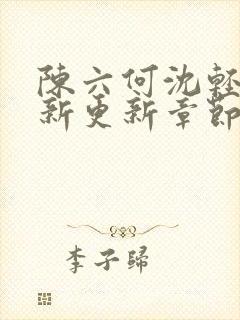 陳六何沈輕
新更新章節
李子歸